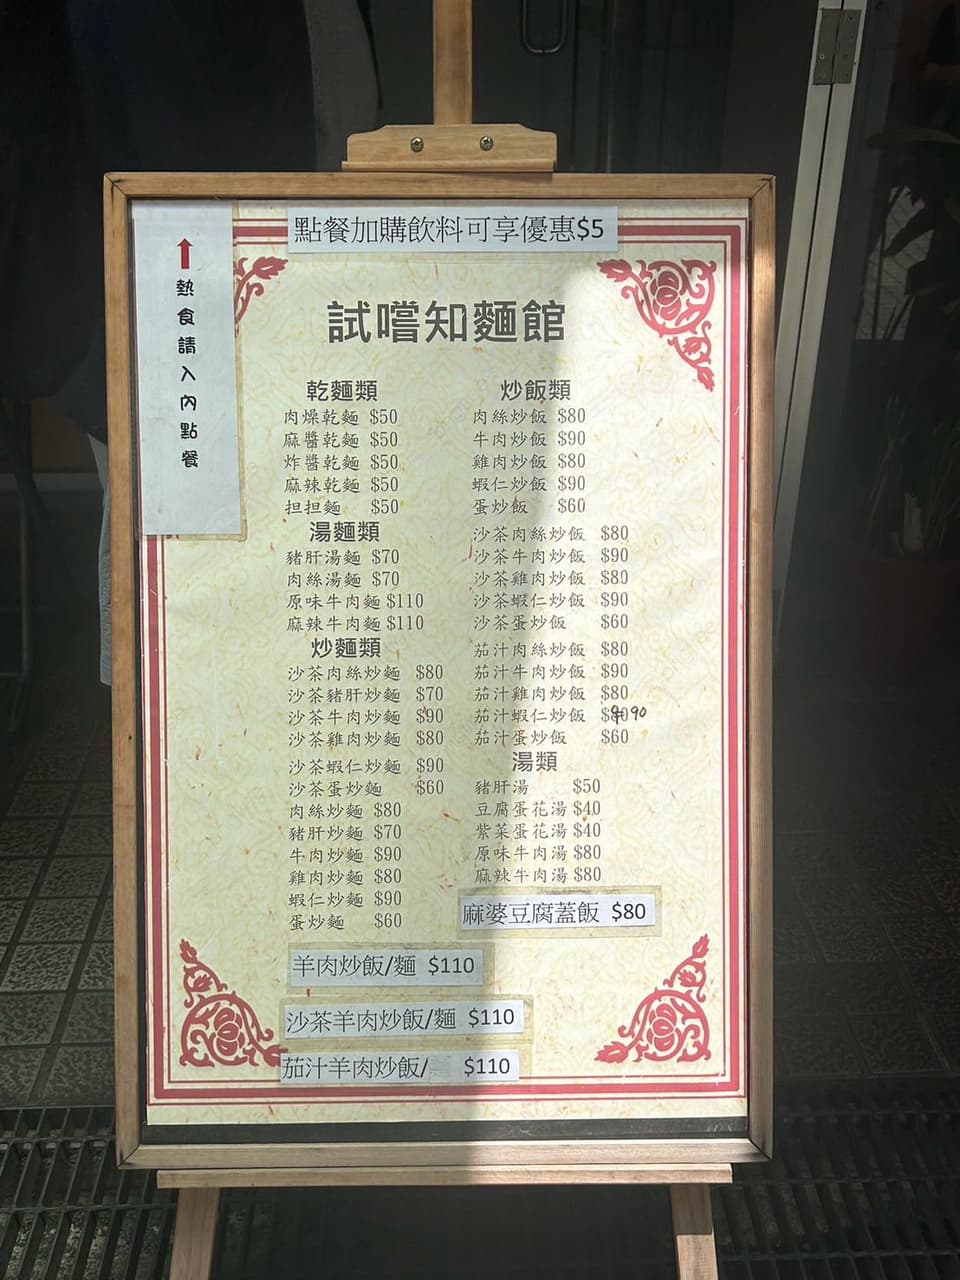 點餐加購飲料可享優惠$5
↑
熱食請入內點餐
試嚐知麵館
乾麵類
肉燥乾麵 $50
麻醬乾麵 $50
炸醬乾麵 $50
麻辣乾麵 $50
担担麵 $50
湯麵類
豬肝湯麵 $70
肉絲湯麵 $70
原味牛肉麵 $110
麻辣牛肉麵 $110
炒麵類
沙茶肉絲炒麵 $80
沙茶豬肝炒麵 $70
沙茶牛肉炒麵 $90
沙茶雞肉炒麵 $80
沙茶蝦仁炒麵 $90
沙茶蛋炒麵 $60
肉絲炒麵 $80
豬肝炒麵 $70
牛肉炒麵 $90
雞肉炒麵 $80
蝦仁炒麵 $90
蛋炒麵 $60
炒飯類
肉絲炒飯 $80
牛肉炒飯 $90
雞肉炒飯 $80
蝦仁炒飯 $90
蛋炒飯 $60
沙茶肉絲炒飯 $80
沙茶牛肉炒飯 $90
沙茶雞肉炒飯 $80
沙茶蝦仁炒飯 $90
沙茶蛋炒飯 $60
茄汁肉絲炒飯 $80
茄汁牛肉炒飯 $90
茄汁雞肉炒飯 $80
茄汁蝦仁炒飯 $80 90
茄汁蛋炒飯 $60
湯類
豬肝湯 $50
豆腐蛋花湯 $40
紫菜蛋花湯 $40
原味牛肉湯 $80
麻辣牛肉湯 $80
麻婆豆腐蓋飯 $80
羊肉炒飯/麵 $110
沙茶羊肉炒飯/麵 $110
茄汁羊肉炒飯/ $110